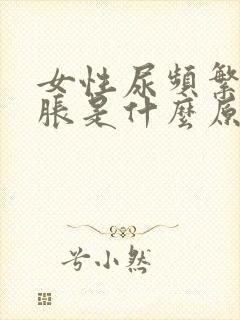 女性尿頻繁
脹是什麼原
兮小然